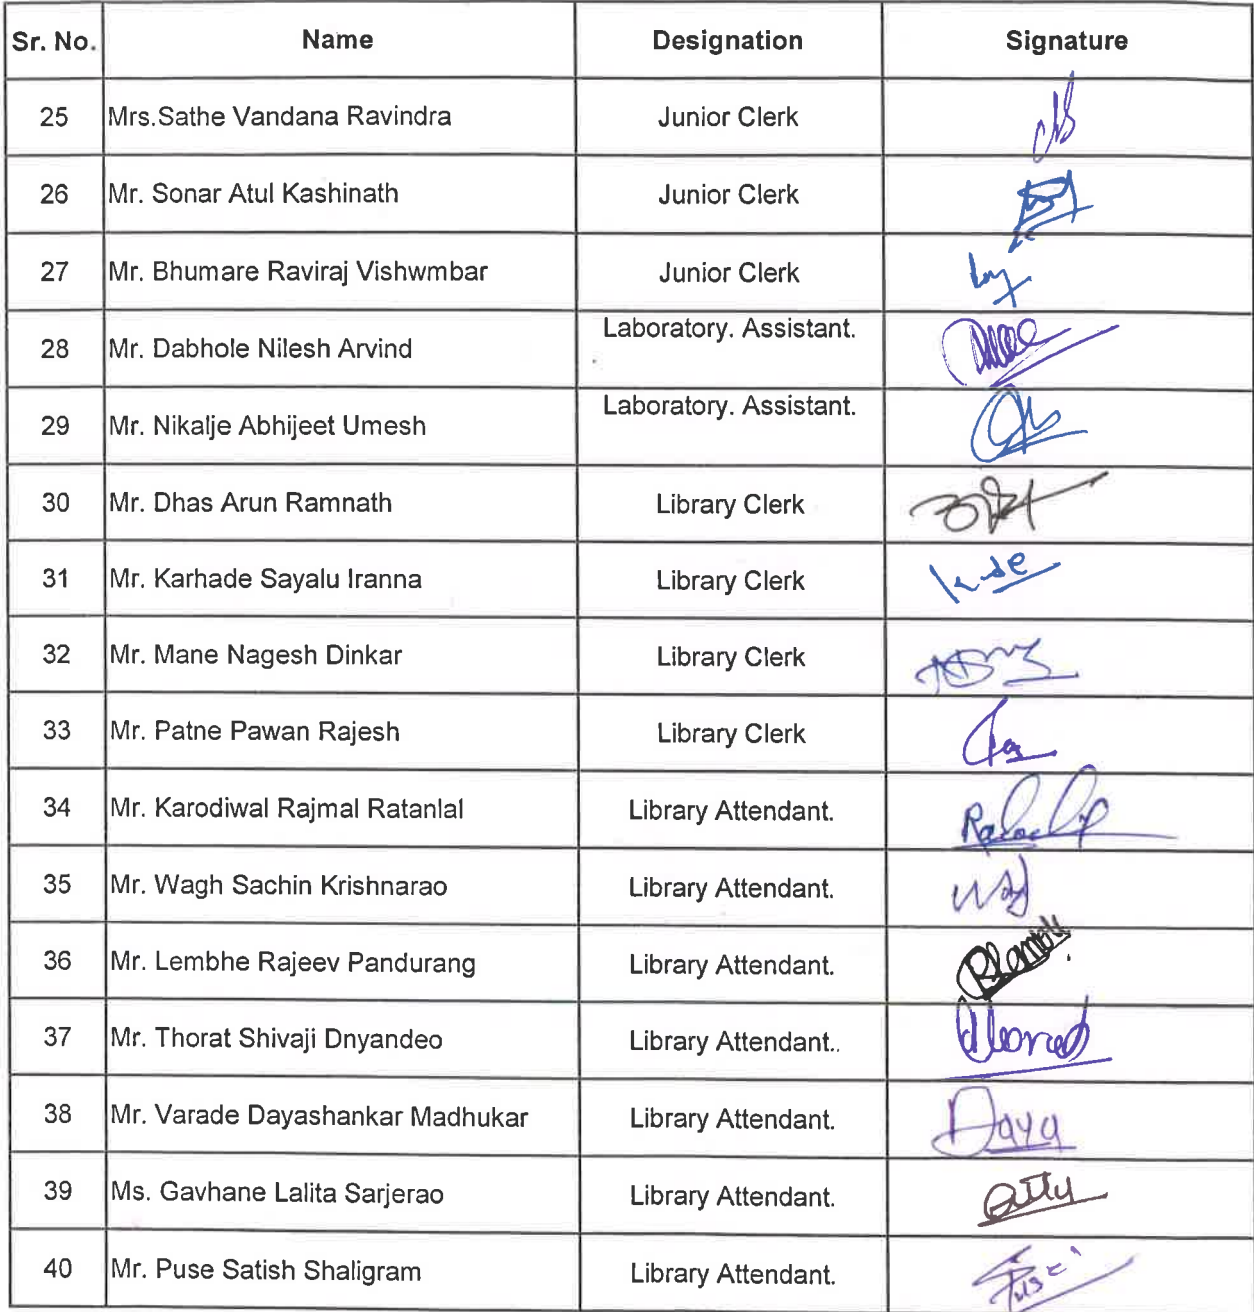 Sr. No. Name Designation Signature
25 Mrs.Sathe Vandana Ravindra Junior Clerk
26 Mr. Sonar Atul Kashinath Junior Clerk
27 Mr. Bhumare Raviraj Vishwmbar Junior Clerk
28 Mr. Dabhole Nilesh Arvind Laboratory. Assistant.
29 Mr. Nikalje Abhijeet Umesh Laboratory. Assistant.
30 Mr. Dhas Arun Ramnath Library Clerk
31 Mr. Karhade Sayalu Iranna Library Clerk
32 Mr. Mane Nagesh Dinkar Library Clerk
33 Mr. Patne Pawan Rajesh Library Clerk
34 Mr. Karodiwal Rajmal Ratanlal Library Attendant.
35 Mr. Wagh Sachin Krishnarao Library Attendant.
36 Mr. Lembhe Rajeev Pandurang Library Attendant.
37 Mr. Thorat Shivaji Dnyandeo Library Attendant..
38 Mr. Varade Dayashankar Madhukar Library Attendant. Daya
39 Ms. Gavhane Lalita Sarjerao Library Attendant.
40 Mr. Puse Satish Shaligram Library Attendant.